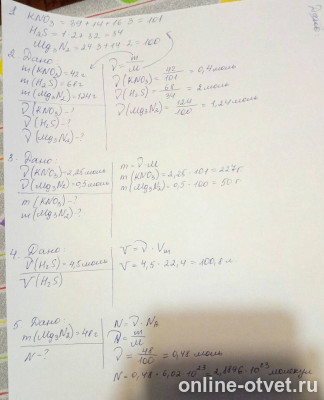 1. KNO3 = 39+14+16·3 = 101
H2S = 1·2+32 = 34
Mg3N2 = 24·3+14·2 = 100
2. Дано:
m(KNO3) = 42г
m(H2S) = 68г
m(Mg3N2) = 124г
ν(KNO3) - ?
ν(H2S) - ?
ν(Mg3N2) - ?
ν = m/M
ν(KNO3) = 42/101 = 0,4 моль
ν(H2S) = 68/34 = 2 моль
ν(Mg3N2) = 124/100 = 1,24 моль
3. Дано:
ν(KNO3) = 2,25 моль
ν(Mg3N2) = 0,5 моль
m(KNO3) - ?
m(Mg3N2) - ?
m = ν·M
m(KNO3) = 2,25·101 = 227г.
m(Mg3N2) = 0,5·100 = 50г.
4. Дано:
ν(H2S) = 4,5 моль
V(H2S)
V = ν·Vm
V = 4,5·22,4 = 100,8 л
5. Дано:
m(Mg3N2) = 48г
N - ?
N = ν·NA
ν = m/M
ν = 48/100 = 0,48 моль
N = 0,48·6,02·10^23 = 2,8896·10^23 молекул
online-otvet.ru